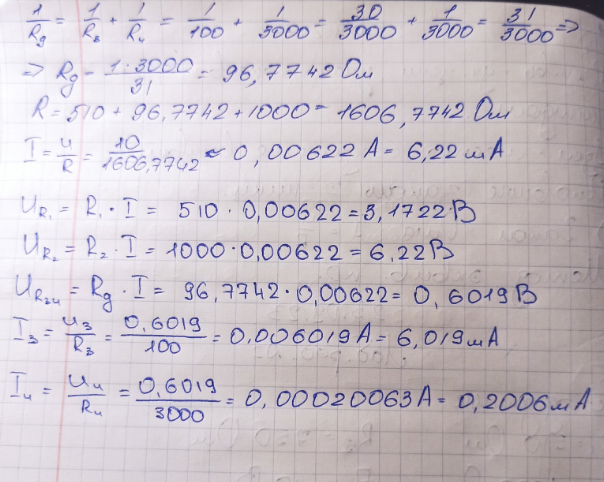 1/Rg = 1/R₃ + 1/R₄ = 1/100 + 1/3000 = 30/3000 + 1/3000 = 31/3000 =>
=> Rg = 1·3000/31 = 96,7742 Ом
R = 510 + 96,7742 + 1000 = 1606,7742 Ом
I = u/R = 10/1606,7742 ≈ 0,00622 A = 6,22 мA
UR₁ = R₁ · I = 510 · 0,00622 = 3,1722 В
UR₂ = R₂ · I = 1000 · 0,00622 = 6,22 В
UR₃₄ = Rg · I = 96,7742 · 0,00622 = 0,6019 В
I₃ = u₃/R₃ = 0,6019/100 = 0,006019 A = 6,019 мA
I₄ = u₄/R₄ = 0,6019/3000 = 0,00020063 A = 0,2006 мA